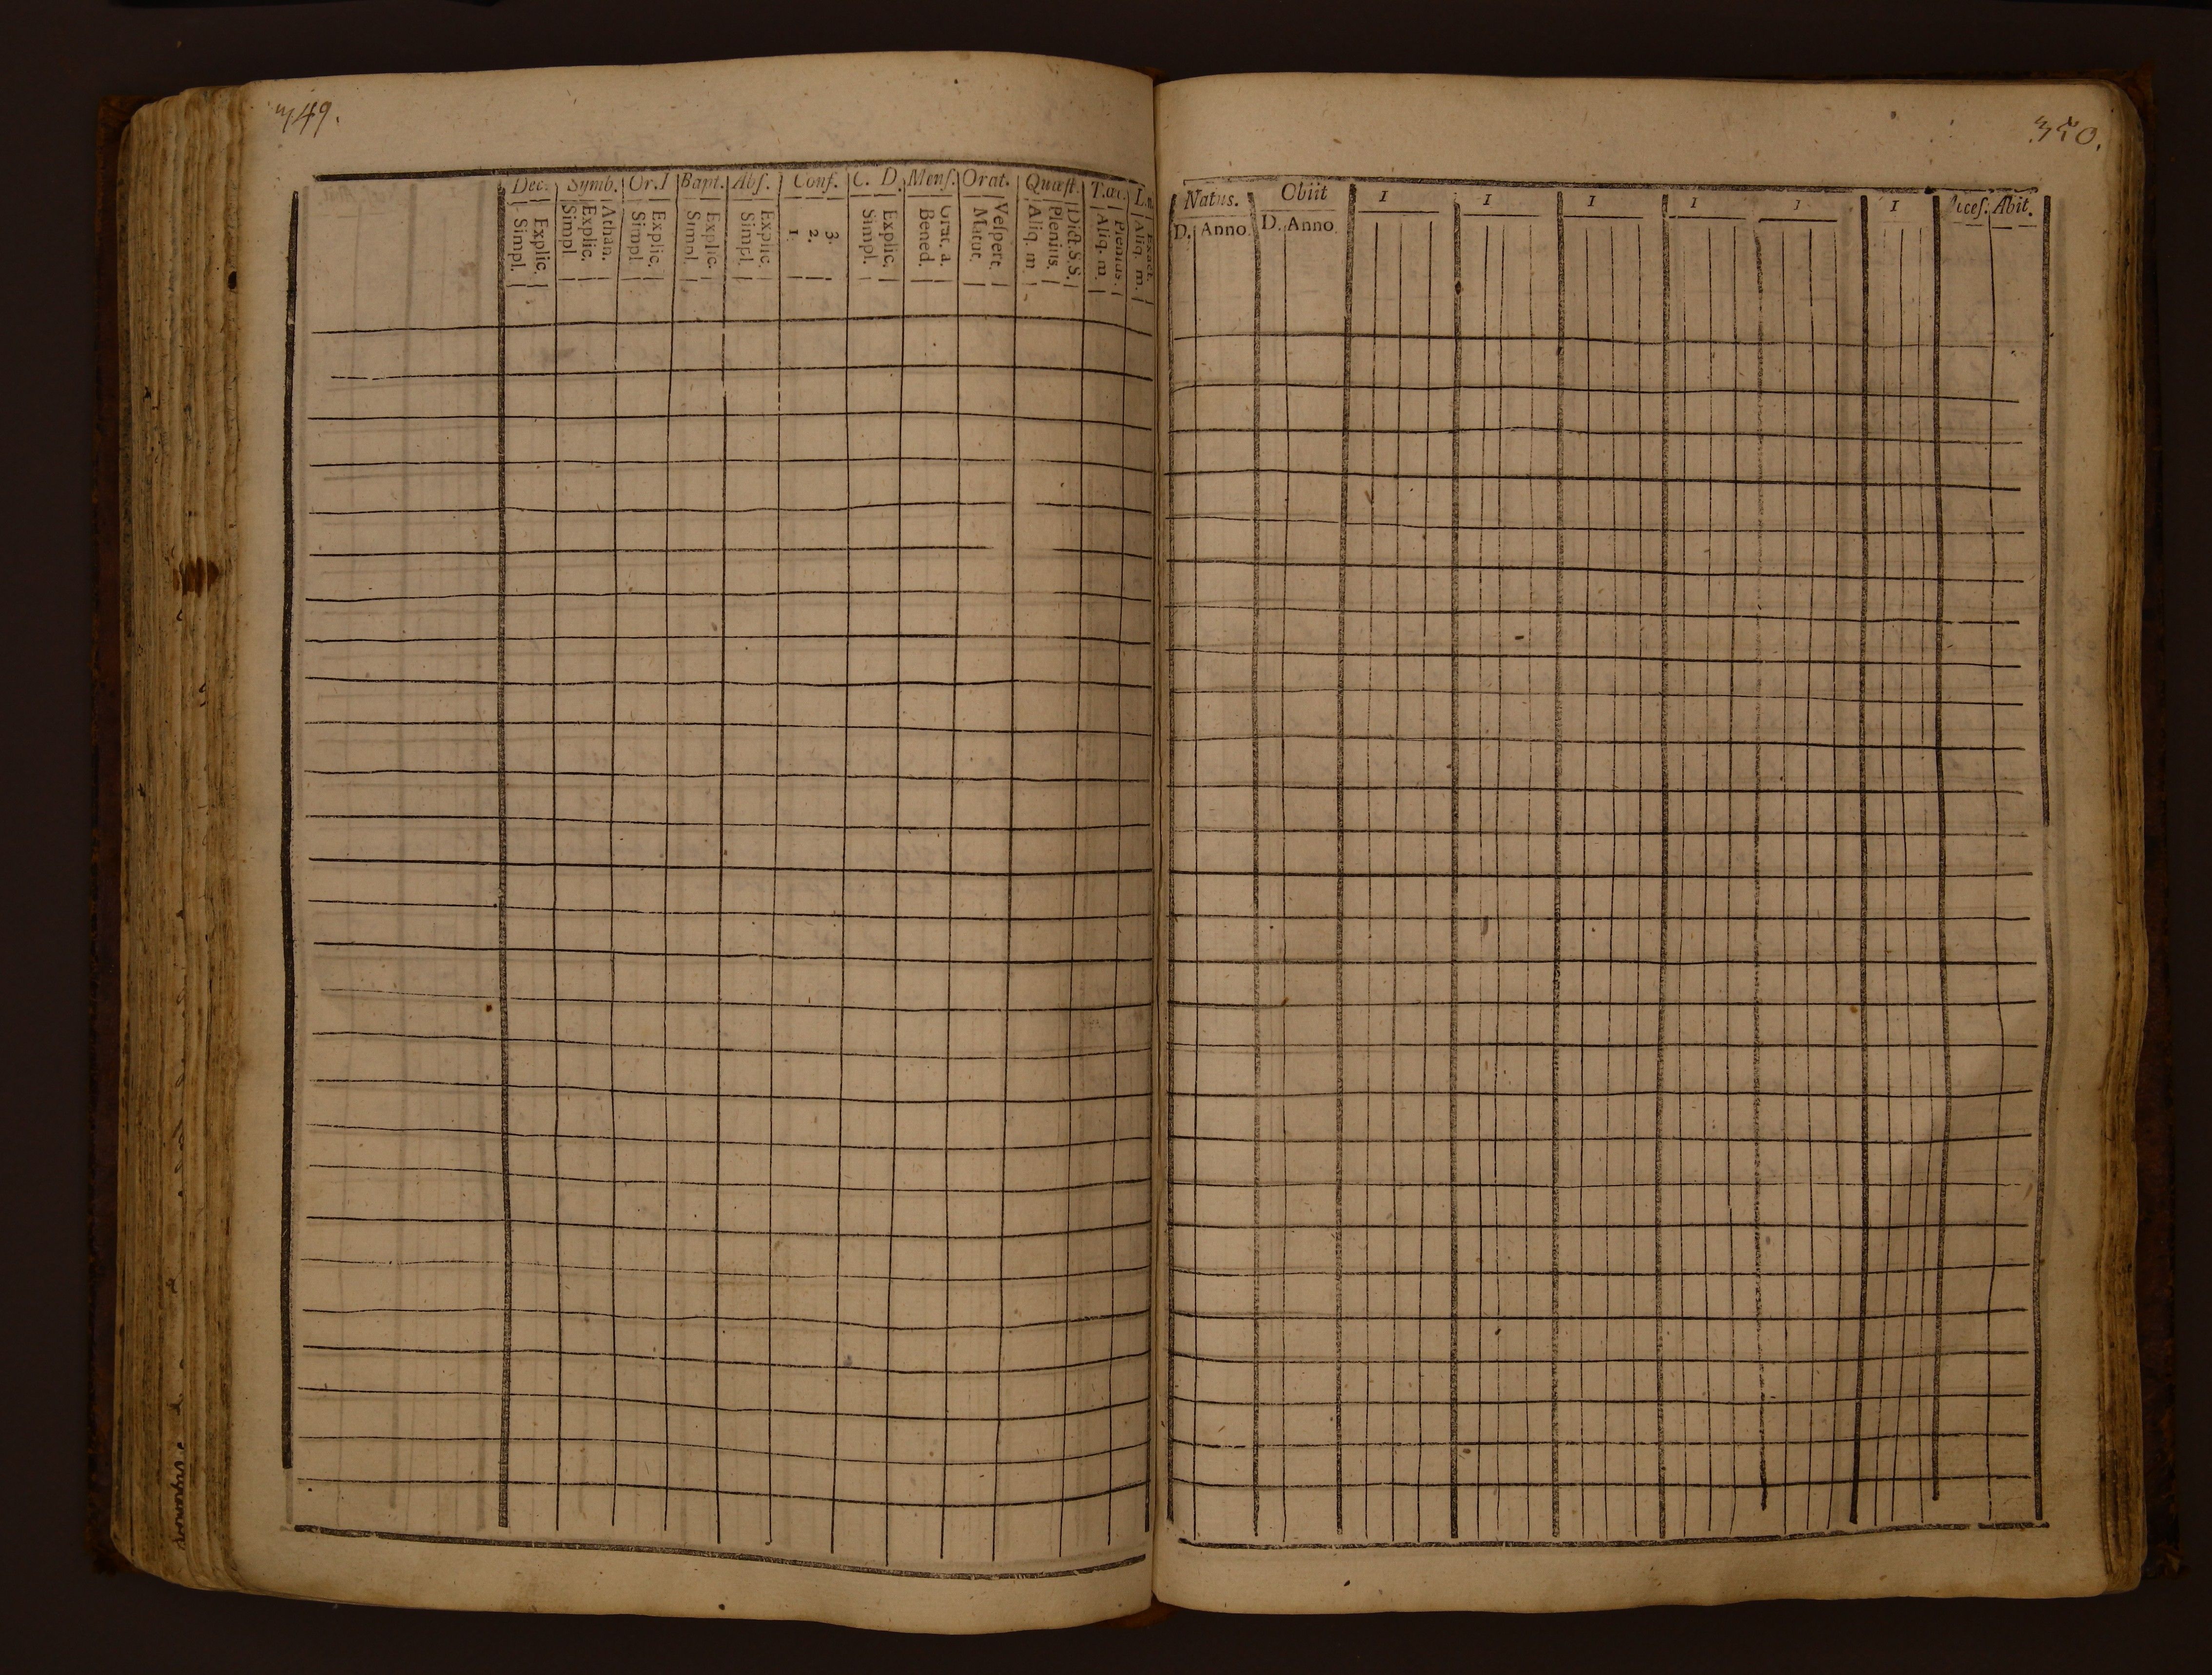 349.
Dec. Symb. Or.I Bapt. Abſ. Conf. C. D. Menſ. Orat. Quæſt. T.æc.
Explic. Simpl.
Athan. Explic. Simpl.
Explic. Simpl.
Explic. Simpl.
Explic. Simpl.
3. 2. 1.
Explic. Simpl.
Grat. a. Bened.
Veſpert. Matut.
Dict.S.S. Plenius. Aliq. m.
Plenius. Aliq. m.
Exact. Aliq. m.
350.
Natus. Obiit I I I I I I Abit.
D. Anno. D. Anno